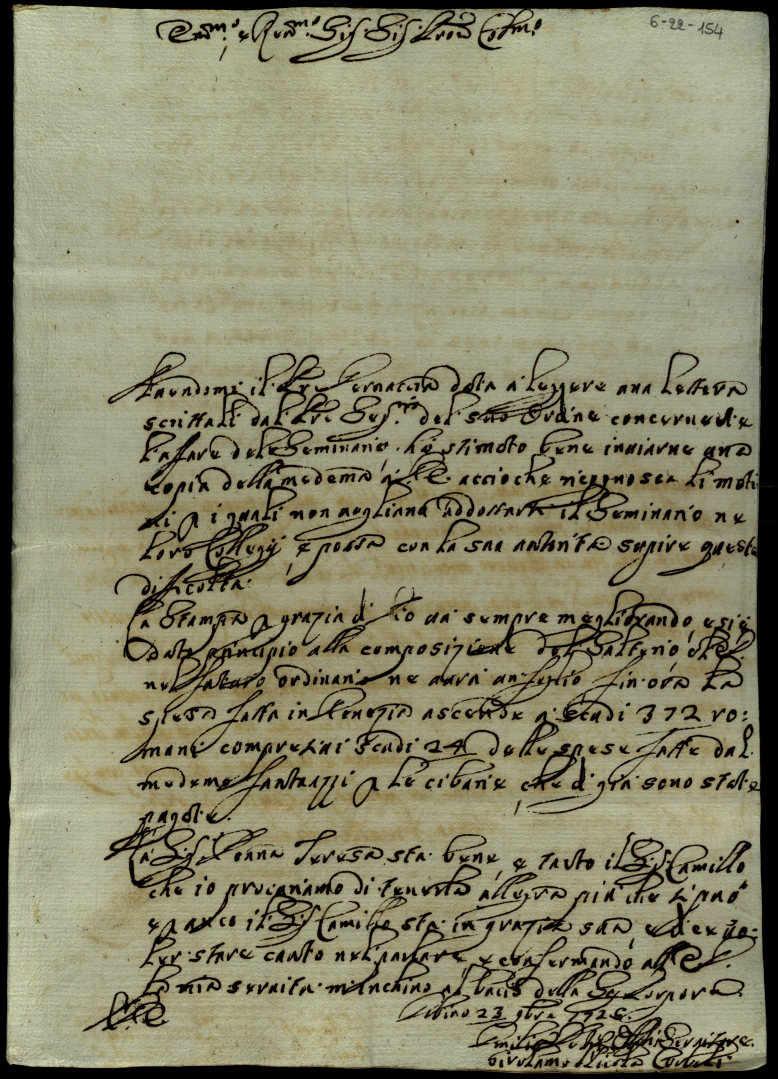 6-22-154
Em.mo e Rev.mo Sig. Sig. Pron Col.mo
il Pre data à leggere una lettera
scrittali dal Pre del suo ordine concernente
l'afare del Seminario, hò stimato bene inviarne una
copia della medema à acciòche riconosca li moti
vi p i quali non vogliano addossarsi il Seminario ne
loro Collegij, e possa con la sua autorità supire questa
dificoltà.
La Stampa p grazia di Dio và sempre megliorando, e si è
dato principio alla composizione del Salterio, che
nel futuro ordinario ne avrà un foglio fin ora la
spesa fatta in Venezia ascende à scudi 372 ro:
mani compresivi scudi 24 delle spese fatte dal
medemo Fantauzzi p le cibarie, che di già sono state
pagate.
La Sig. Donna Teresa stà bene, e tanto il Sig. Camillo
che io procuriamo di tenerla allegra più che si può
e anco il Sig. Camillo stà in grazia sua, e dice vo:
ler stare cauto nel parlare, e confermando all'
la mia servitù m'inchino al bacio della Sag. Porpora.
Urbino 23 9bre 1726.